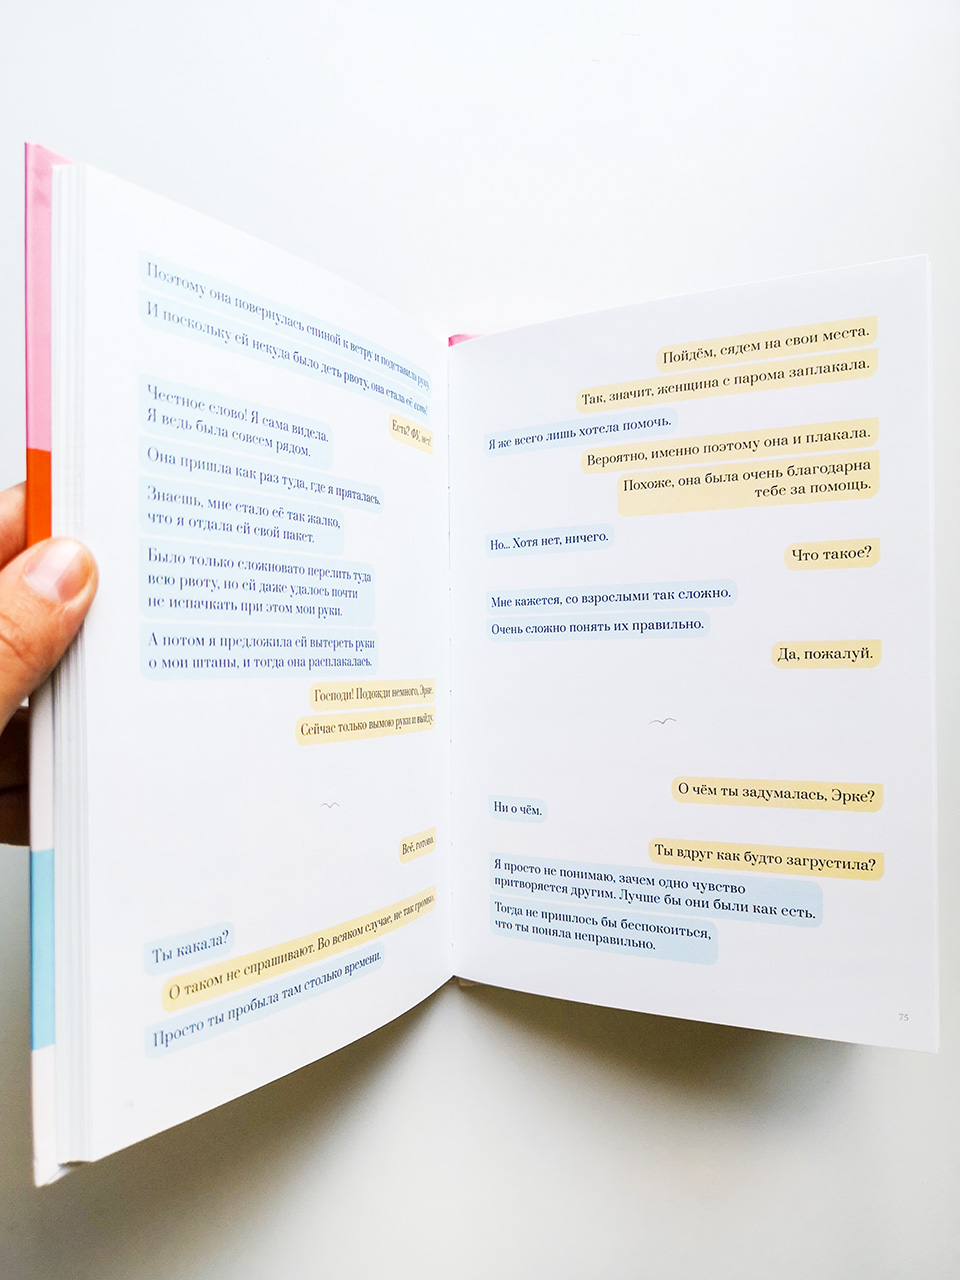 Поэтому она повернулась спиной к ветру и подставила руку.
И поскольку ей некуда было деть рвоту, она стала её есть!
Есть? Фу, нет!
Честное слово! Я сама видела.
Я ведь была совсем рядом.
Она пришла как раз туда, где я пряталась.
Знаешь, мне стало её так жалко,
что я отдала ей свой пакет.
Было только сложновато перелить туда
всю рвоту, но ей даже удалось почти
не испачкать при этом мои руки.
А потом я предложила ей вытереть руки
о мои штаны, и тогда она расплакалась.
Господи! Подожди немного, Эрке.
Сейчас только вымою руки и выйду.
Всё, готово.
Ты какала?
О таком не спрашивают. Во всяком случае, не так громко.
Просто ты пробыла там столько времени.
Пойдём, сядем на свои места.
Так, значит, женщина с парома заплакала.
Я же всего лишь хотела помочь.
Вероятно, именно поэтому она и плакала.
Похоже, она была очень благодарна
тебе за помощь.
Но... Хотя нет, ничего.
Что такое?
Мне кажется, со взрослыми так сложно.
Очень сложно понять их правильно.
Да, пожалуй.
О чём ты задумалась, Эрке?
Ни о чём.
Ты вдруг как будто загрустила?
Я просто не понимаю, зачем одно чувство
притворяется другим. Лучше бы они были как есть.
Тогда не пришлось бы беспокоиться,
что ты поняла неправильно.
75